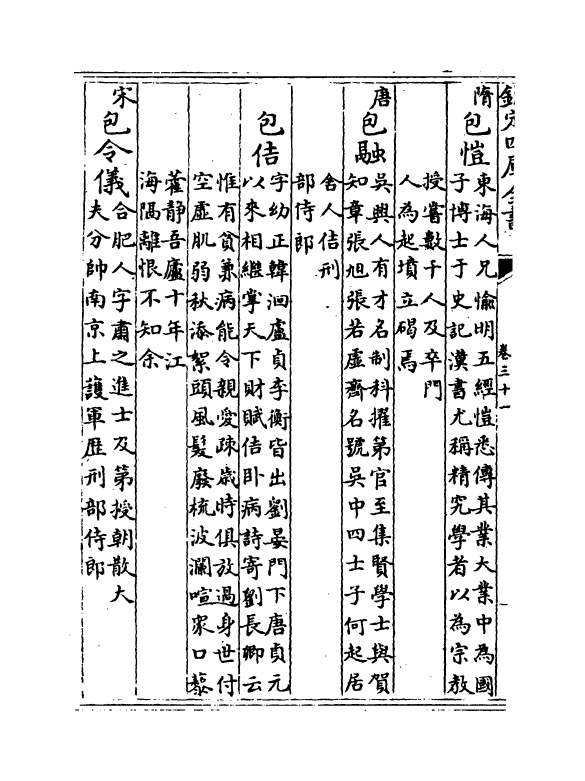 欽定四庫全書 卷三十一
隋
包愷 東海人兄愉明五經愷悉傳其業大業中為國
子博士于史記漢書尤稱精究學者以為宗教
授嘗數千人及卒門
人為起墳立碣焉
唐
包融 吳興人有才名制科擢第官至集賢學士與賀
知章張旭張若虛齊名號吳中四士子何起居
舍人佶刑
部侍郎
包佶 字幼正韓洄盧貞李衡皆出劉晏門下唐貞元
以來相繼掌天下財賦佶卧病詩寄劉長卿云
惟有貧兼病能令親愛疎歲時俱放過身世付
空虛肌弱秋添絮頭風髮廢梳波瀾喧衆口藜
藿靜吾廬十年江
海隅離恨不知余
宋
包令儀 合肥人字肅之進士及第授朝散大
夫分帥南京上護軍歷刑部侍郎